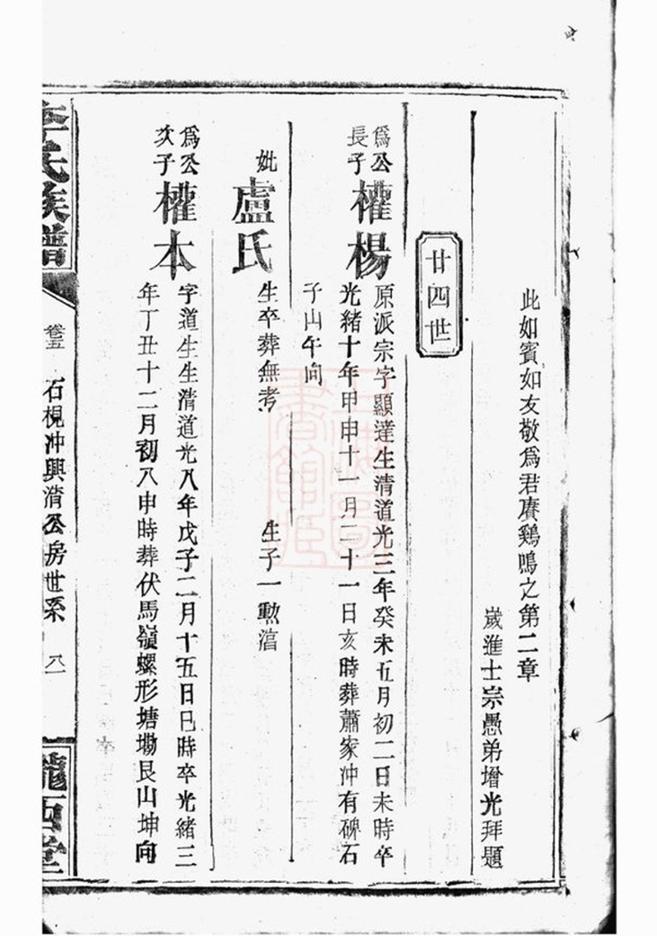 此如賓如友敬爲君賡鷄鳴之第二章
歲進士宗愚弟增光拜題
廿四世
爲公長子
權楊
原派宗字顯達生清道光三年癸未五月初二日未時卒
光緒十年甲申十一月二十一日亥時葬蕭家冲有碑石
子山午向
妣
盧氏
生卒葬無考
生子一勲㵙
爲公次子
權本
字道生生清道光八年戊子二月十五日巳時卒光緒三
年丁丑十二月初八申時葬伏馬嶺螺形塘塝艮山坤向
李氏族譜
卷五
石梘冲興湇公房世系
八一
隴西堂